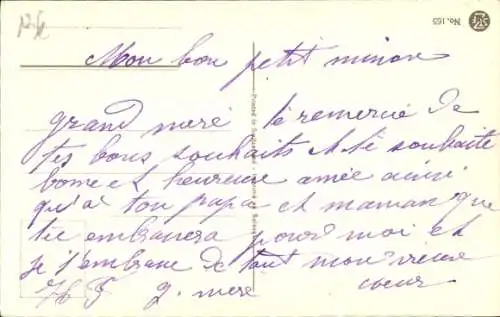 No. 165
Mon bon petit minou
grand meré te remercie de
tes bons souhaits et te souhaite
bonne et heureuse année ainsi
qu'à ton papa et maman que
tu embrassera pour moi et
je t'embrasse de tout mon vieux
g. mere coeur